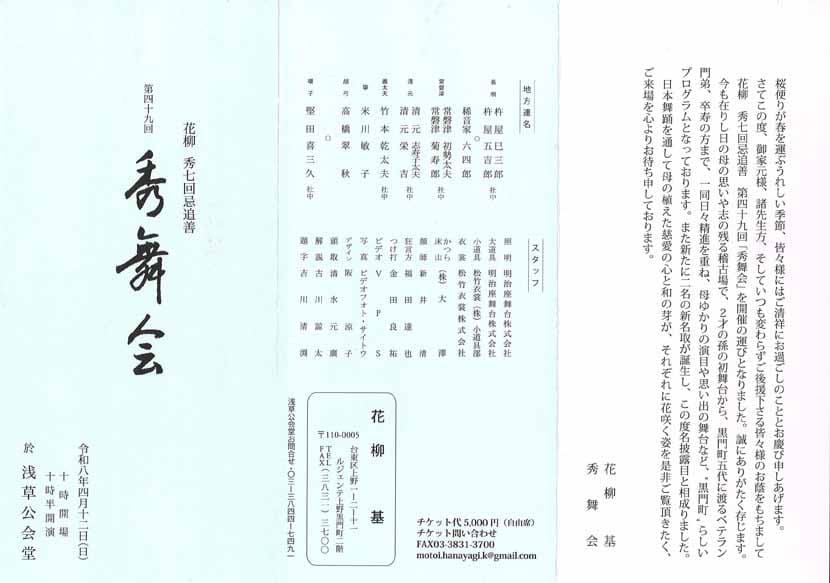 桜便りが春を運ぶうれしい季節、皆々様にはご清祥にお過ごしのこととお慶び申しあげます。
さてこの度、御家元様、諸先生方、そしていつも変わらずご後援下さる皆々様のお蔭をもちまして
花柳 秀七回忌追善 第四十九回「秀舞会」を開催の運びとなりました。誠にありがたく存じます。
今も在りし日の母の思いや志の残る稽古場で、2才の孫の初舞台から、黒門町五代に渡るベテラン
門弟、卒寿の方まで、一同日々精進を重ね、母ゆかりの演目や思い出の舞台など、“黒門町”らしい
プログラムとなっております。また新たに二名の新名取が誕生し、この度名披露目と相成りました。
日本舞踊を通して母の植えた慈愛の心と和の芽が、それぞれに花咲く姿を是非ご覧頂きたく、
ご来場を心よりお待ち申しております。
花柳 基
秀舞会
地方連名
長唄 杵屋巳三郎
杵屋五吉郎 社中
稀音家六四郎
常磐津 常磐津 初勢太夫
常磐津 菊寿郎 社中
清元 清元 志寿子太夫
清元 栄吉 社中
義太夫 竹本乾太夫 社中
箏 米川敏子
胡弓 高橋翠秋
囃子 堅田喜三久 社中
スタッフ
照明 明治座舞台株式会社
大道具 明治座舞台株式会社
小道具 松竹衣裳(株)小道具部
衣裳 松竹衣裳株式会社
かつら
床山 (株)大澤
顔師 新井清
狂言方 福田達也
つけ打 金田良祐
ビデオ VPS
写真 ビデオフォト・サイトウ
デザイン 阪涼子
頭取 清水元廣
解説 古川諒太
題字 吉川清渕
花柳 基
〒110-0005
台東区上野一-二-十一
ルジェンテ上野黒門町二階
TEL
FAX(三八三一)三七〇〇
浅草公会堂お問合せ・〇三-三八四四-七四九一
チケット代 5,000円(自由席)
チケット問い合わせ
FAX03-3831-3700
motoi.hanayagi.k@gmail.com
花柳 秀七回忌追善
第四十九回
秀舞会
令和八年四月十二日(日)
十時開場
十時半開演
於 浅草公会堂